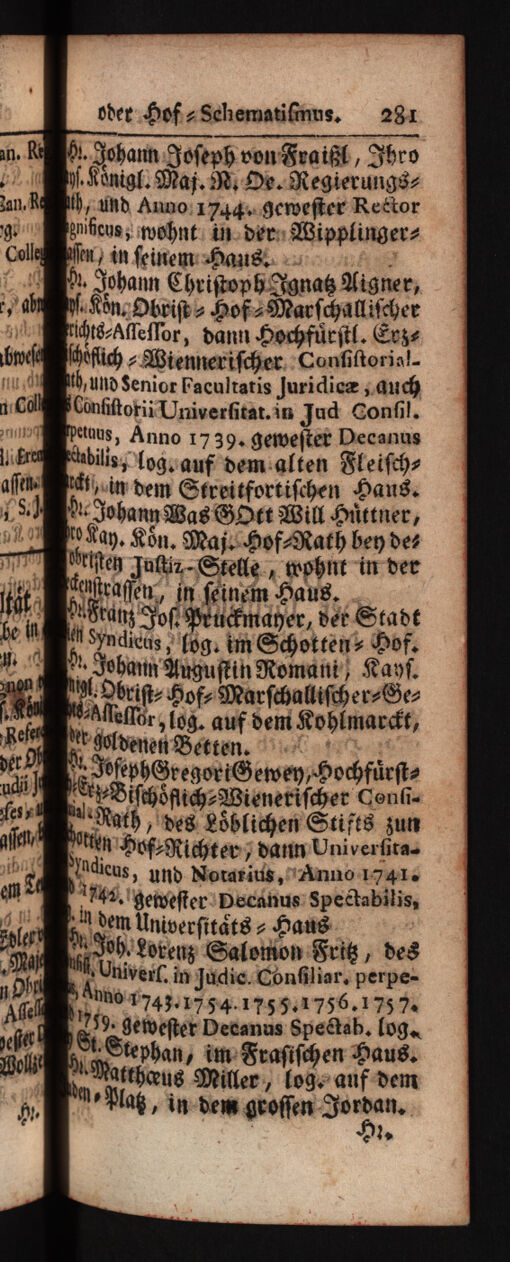 oder Hof⸗Schematismus. 281
Hr. Johann Joseph von Fraißl, Ihro
Königl. Maj. N. Oe. Regierungs⸗
ath, und Anno 1744. gewester Rector
gnificus, wohnt in der Wipplinger⸗
assen, in seinem Haus.
Hr. Johann Christoph Ignatz Aigner,
ys. Kön. Obrist⸗Hof⸗Marschallischer
richts⸗Assessor, dann Hochfürstl. Erz⸗
schöflich⸗Wiennerischer Consistorial-
ath, und Senior Facultatis Juridicæ, auch
s Consistorii Universitat. in Jud Consil.
rpetuus, Anno 1739. gewester Decanus
ectabilis, log. auf dem alten Fleisch⸗
rckt, in dem Streitfortischen Haus.
Hr. Johann Was GOtt Will Hüttner,
ro Kay. Kön. Maj. Hof⸗Rath bey de⸗
obristen Justiz-Stelle, wohnt in der
ckenstrassen, in seinem Haus.
Hr. Franz Jos. Pruckmayer, der Stadt
ien Syndicus, log. im Schotten⸗Hof.
Hr. Johann Augustin Romani, Kays.
nigl. Obrist⸗Hof⸗Marschallischer⸗Ge⸗
ts⸗Assessor, log. auf dem Kohlmarckt,
der goldenen Betten.
Hr. Joseph Gregori Gewey, Hochfürst⸗
Erz⸗Bischöflich⸗Wienerischer Consi-
ial⸗Rath, des Löblichen Stifts zun
hotten Hof⸗Richter, dann Universita-
Syndicus, und Notarius, Anno 1741.
d 1742. gewester Decanus Spectabilis,
in dem Universitäts⸗Haus
Hr. Joh. Lorenz Salomon Fritz, des
Univers. in Judic. Consiliar. perpe-
Anno 1743. 1754. 1755. 1756. 1757.
d 1759. gewester Decanus Spectab. log.
St. Stephan, im Frasischen Haus.
Hr. Matthœus Miller, log. auf dem
den⸗Platz, in dem grossen Jordan.
Hr.